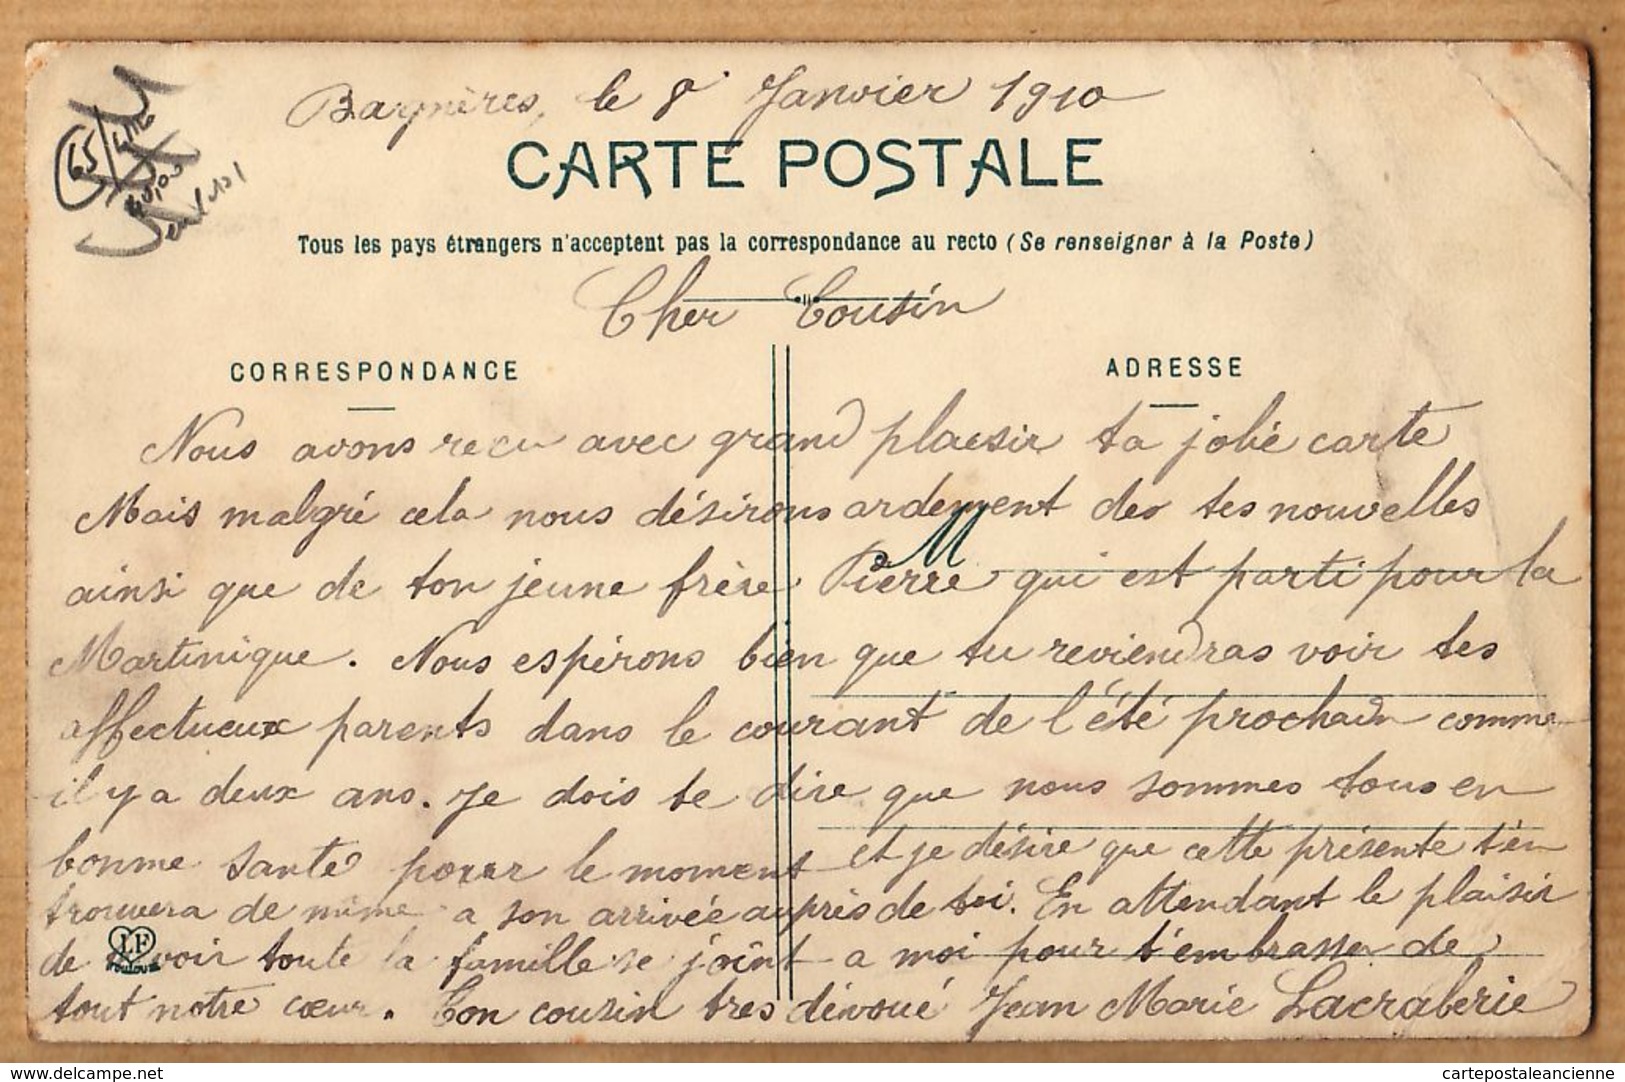 Bagnères, le 8 Janvier 1910
65
CARTE POSTALE
Tous les pays étrangers n'acceptent pas la correspondance au recto (Se renseigner à la Poste)
Cher Cousin
CORRESPONDANCE
ADRESSE
Nous avons recu avec grand plaesir ta jolie carte
Mais malgré cela nous désirons ardement des tes nouvelles
M
ainsi que de ton jeune frère Pierre qui est parti pour la
Martinique. Nous espérons bien que tu reviendras voir tes
affectueux parents dans le courant de l'été prochain comme
il y a deux ans. Je dois te dire que nous sommes tous en
bonne santé pour le moment et je désire que cette présente t'en
trouvera de même a son arrivée auprès de toi. En attendant le plaisir
de voir toute la famille se joint a moi pour t'embrasser de
LF
Toulouse
tout notre cœur. Ton cousin tres dévoué Jean Marie Lacraberie
delcampe.net
cartepostaleancienne